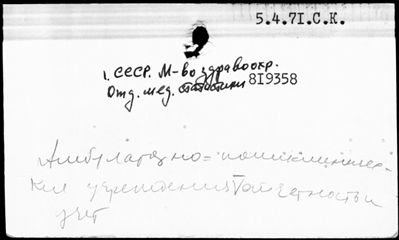 5.4.71.С.К.
1. СССР. М-во здравоохр.
Отд. мед. статистики 819358
Амбулаторно-поликлиничес-
кие учреждения отчетность и
учет